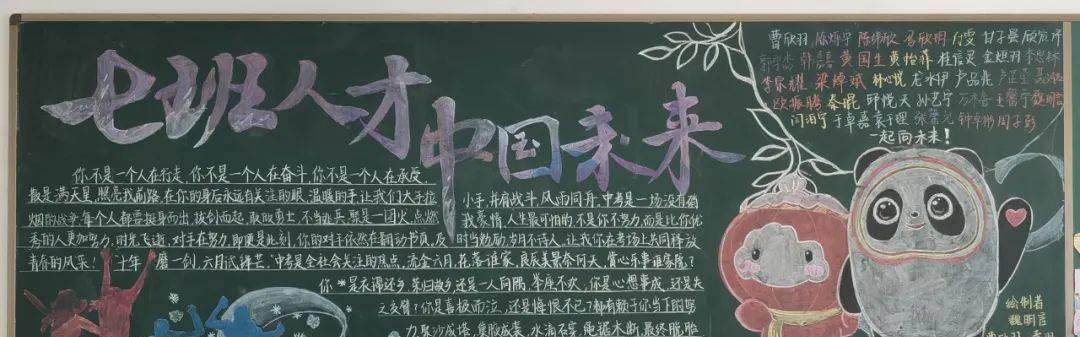 七班人才
中国未来
你不是一个人在行走,你不是一个人在奋斗,你不是一个人在承受
散是满天星,照亮我前路,在你的身后永远有关注的眼,温暖的手,让我们大手拉
小手,并肩战斗,风雨同舟,中考是一场没有硝
烟的战争,每个人都要挺身而出,拔剑而起,敢做勇士,不当逃兵,聚是一团火,点燃
我豪情,人生最可怕的,不是你不努力,而是比你优
秀的人更加努力,时光飞逝,对手在努力,即便是此刻,你的对手依然在翻动书页,及
时当勉励,岁月不待人,让我你在考场上共同释放
青春的风采!十年磨一剑,六月试锋芒,中考是全社会关注的焦点,流金六月,花落谁家,良辰美景奈何天,赏心乐事谁家院?
你是衣锦还乡,荣归故乡,还是一人向隅,举座不欢,你是心想事成,还是失
之交臂?你是喜极而泣,还是悔恨不已?都有赖于你当下的努
力,聚沙成塔,集腋成裘,水滴石穿,绳锯木断,最终脱胎
曹欣羽 陈烁宇 陈炜欣 付雯 甘子昙
韩语 黄国生 黄怡菲 桂信灵 金煜羽
李家耀 梁焯斌 林心悦 龙水伊 卢品兆
欧振腾 秦琨 邱悦天 孙艺宁 王馨宁 魏明言
闫泊宁 于卓嘉 袁于理 钟卓彬 周子彭
一起向未来!
绘制者
魏明言
曹欣羽